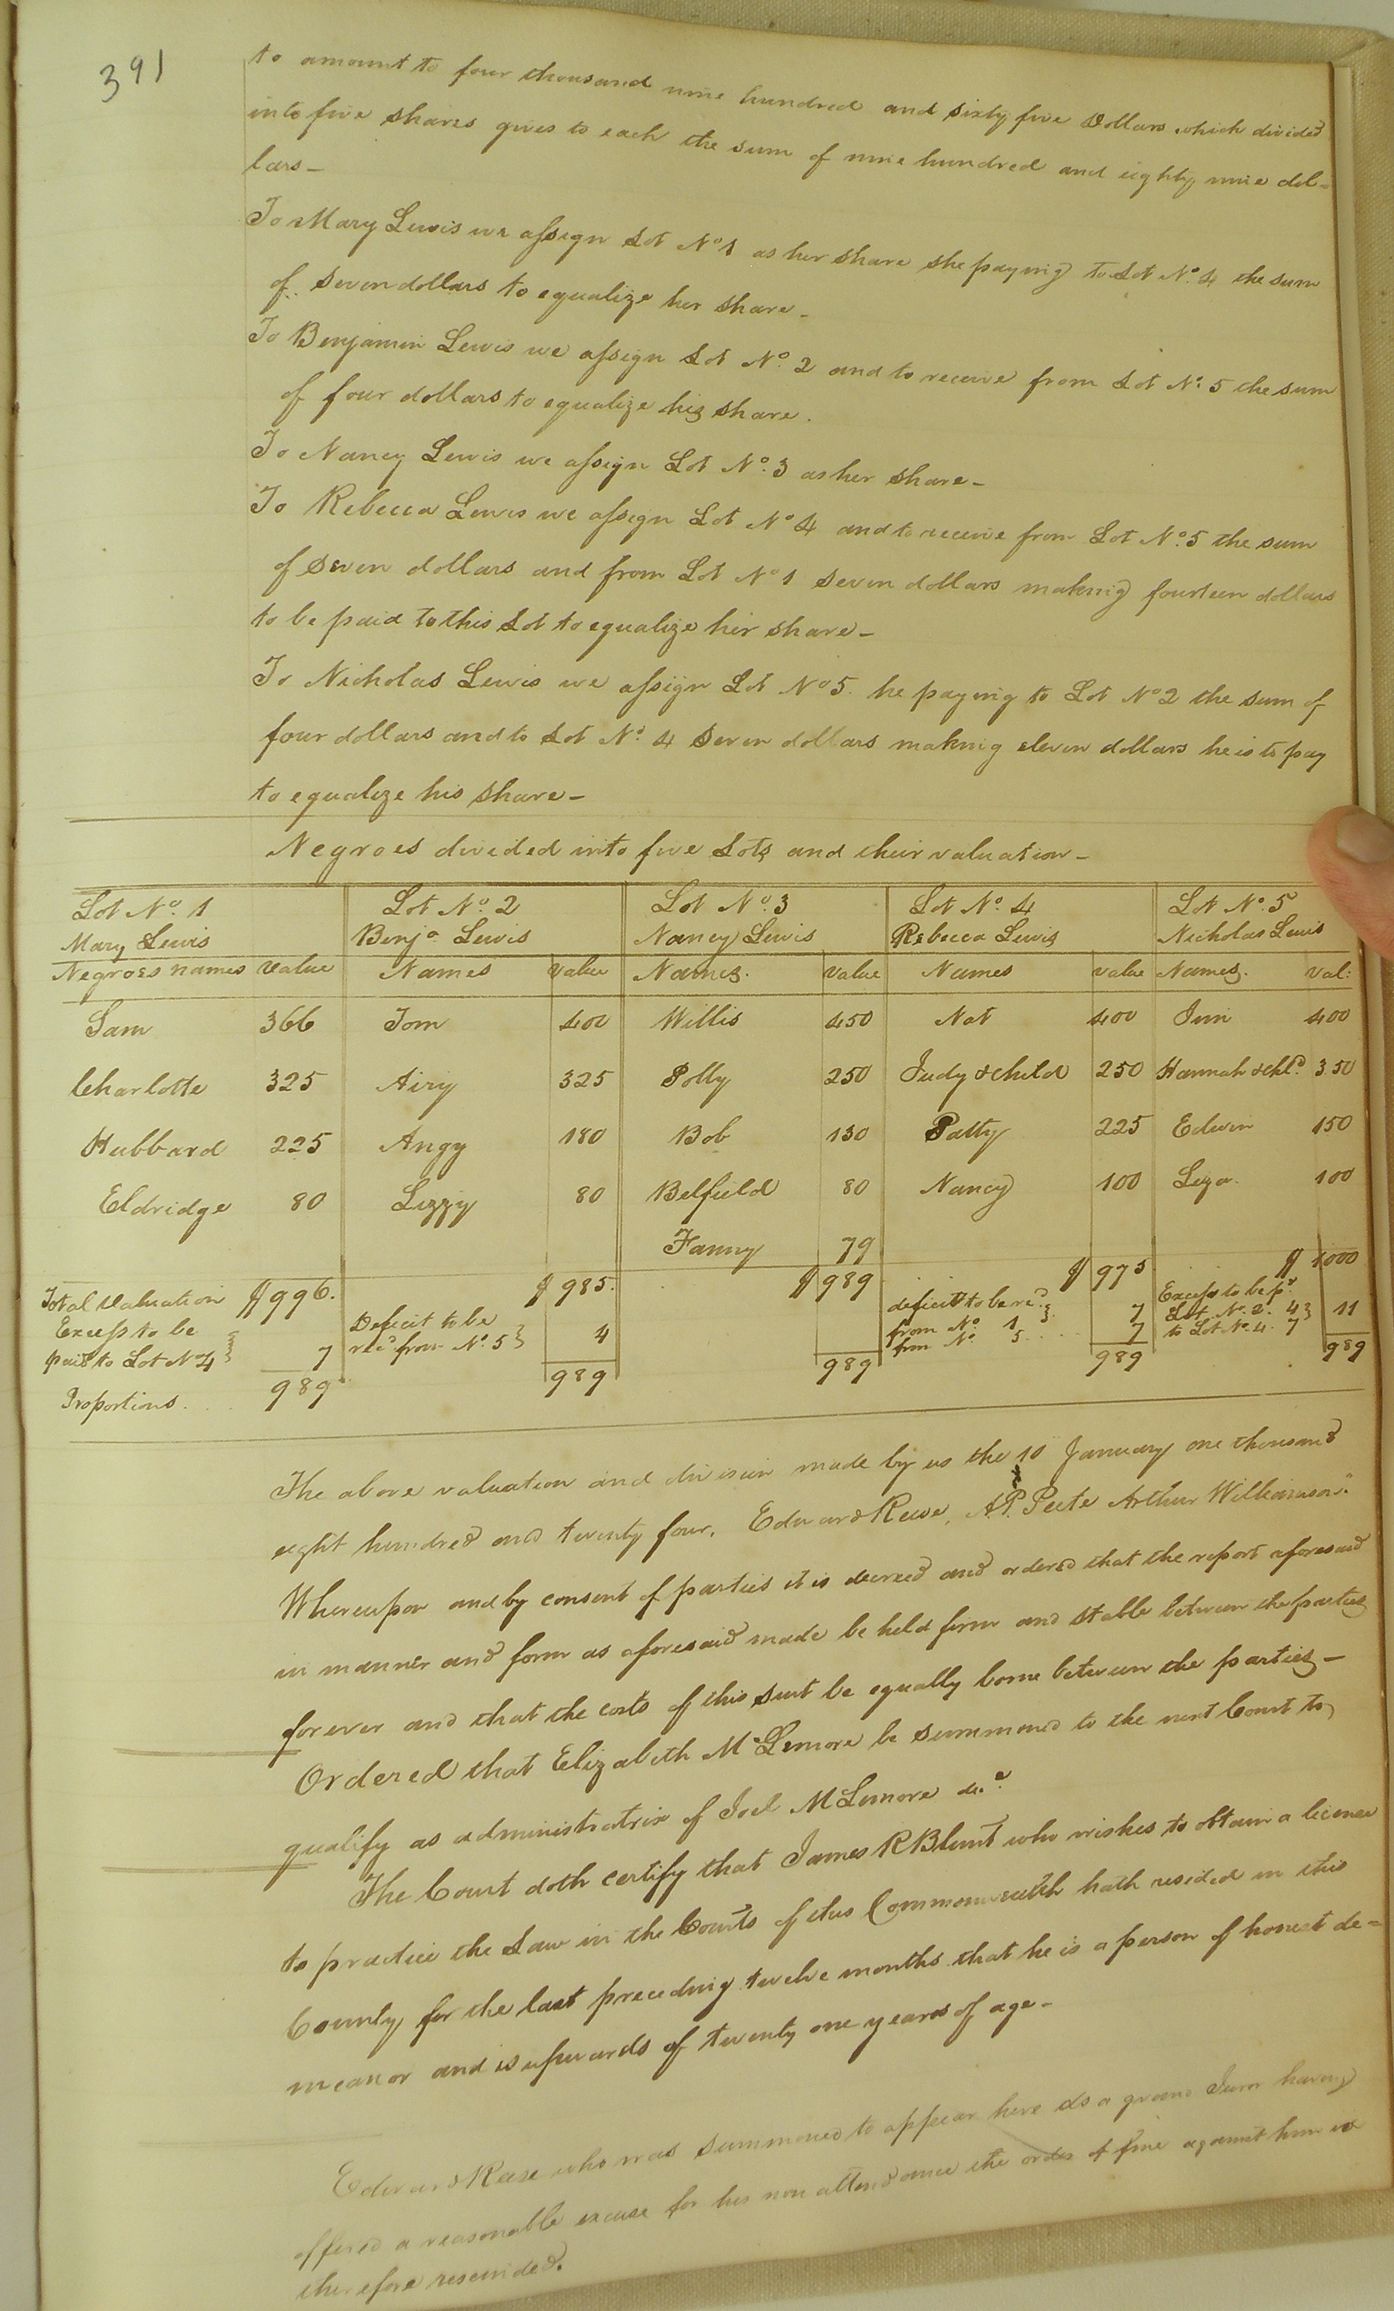 391
to amount to four thousand nine hundred and sixty five Dollars which divided
into five shares gives to each the sum of nine hundred and eighty nine dol=
lars—
To Mary Lewis we assign Lot No 1 as her share she paying to Lot No. 4 the sum
of seven dollars to equalize her share—
To Benjamin Lewis we assign Lot No. 2 and to receive from Lot No. 5 the sum
of four dollars to equalize his share.
To Nancy Lewis we assign Lot No. 3 as her share—
To Rebecca Lewis we assign Lot No 4 and to receive from Lot No. 5 the sum
of seven dollars and from Lot No 1 seven dollars making fourteen dollars
to be paid to this Lot to equalize her share—
To Nicholas Lewis we assign Lot No 5. he paying to Lot No 2 the sum of
four dollars and to Lot No. 4 seven dollars making eleven dollars he is to pay
to equalize his share—
Negroes divided into five Lots and their valuation—
Lot No. 1 Lot No. 2 Lot No. 3 Lot No. 4 Lot No. 5
Mary Lewis Benja Lewis Nancy Lewis Rebecca Lewis Nicholas Lewis
Negroes names value Names value Names. value Names value Names. val:
Sam 366 Tom 400 Willis 450 Nat 400 Jim 400
Charlotte 325 Airy 325 Polly 250 Judy & child 250 Hannah & chld. 350
Hubbard 225 Angy 180 Bob 130 Patty 225 Edwin 150
Eldridge 80 Lizzy 80 Belfield 80 Nancy 100 Liza. 100
Fanny 79
Total valuation $996. $985. $989 $975 $1000
Excess to be paid to Lot No 4 7 Deficit to be recd. from No. 5 4 deficit to be recd. from No. 1 7 from No. 5 7 Excess to be pd. Lot No. 2. 4 to Lot No. 4. 7 11
Proportions. 989 989 989 989 989
The above valuation and division made by us the 10 January one thousand
eight hundred and twenty four. Edward Reese, A. P. Peete Arthur Wilkinson"
Whereupon and by consent of parties it is decreed and ordered that the report aforesaid
in manner and form as aforesaid made be held firm and stable between the parties
forever and that the costs of this suit be equally borne between the parties—
Ordered that Elizabeth McLemore be summoned to the next Court to
qualify as administratrix of Joel McLemore dec.
The Court doth certify that James R Blunt who wishes to obtain a license
to practice the Law in the Courts of this Commonwealth hath resided in this
County for the last preceding twelve months that he is a person of honest de=
meanor and is upwards of twenty one years of age—
Edward Reese who was summoned to appear here as a grand Juror having
offered a reasonable excuse for his non attendance the order of fine against him is
therefore rescinded.